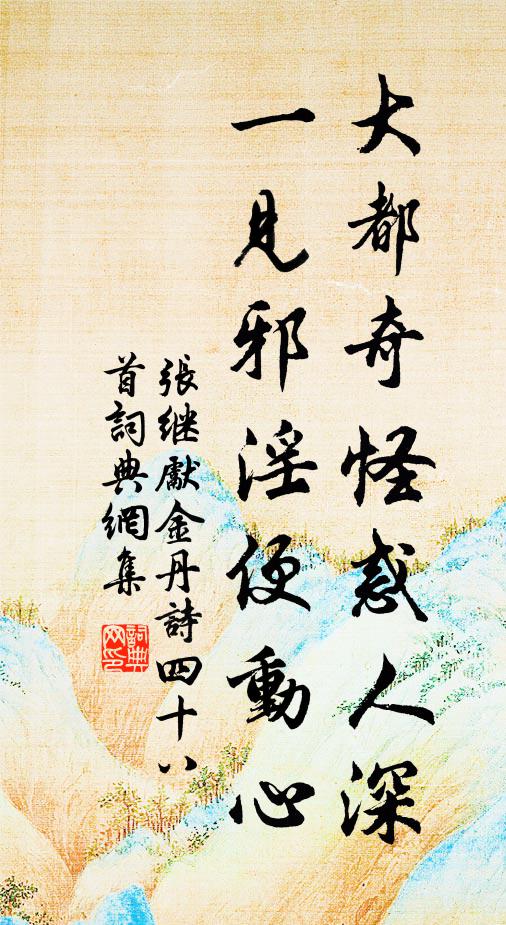 大都奇怪惑人深
一見邪淫便動心
張继獻金丹詩四十八
首詞典網集
詞典
网印